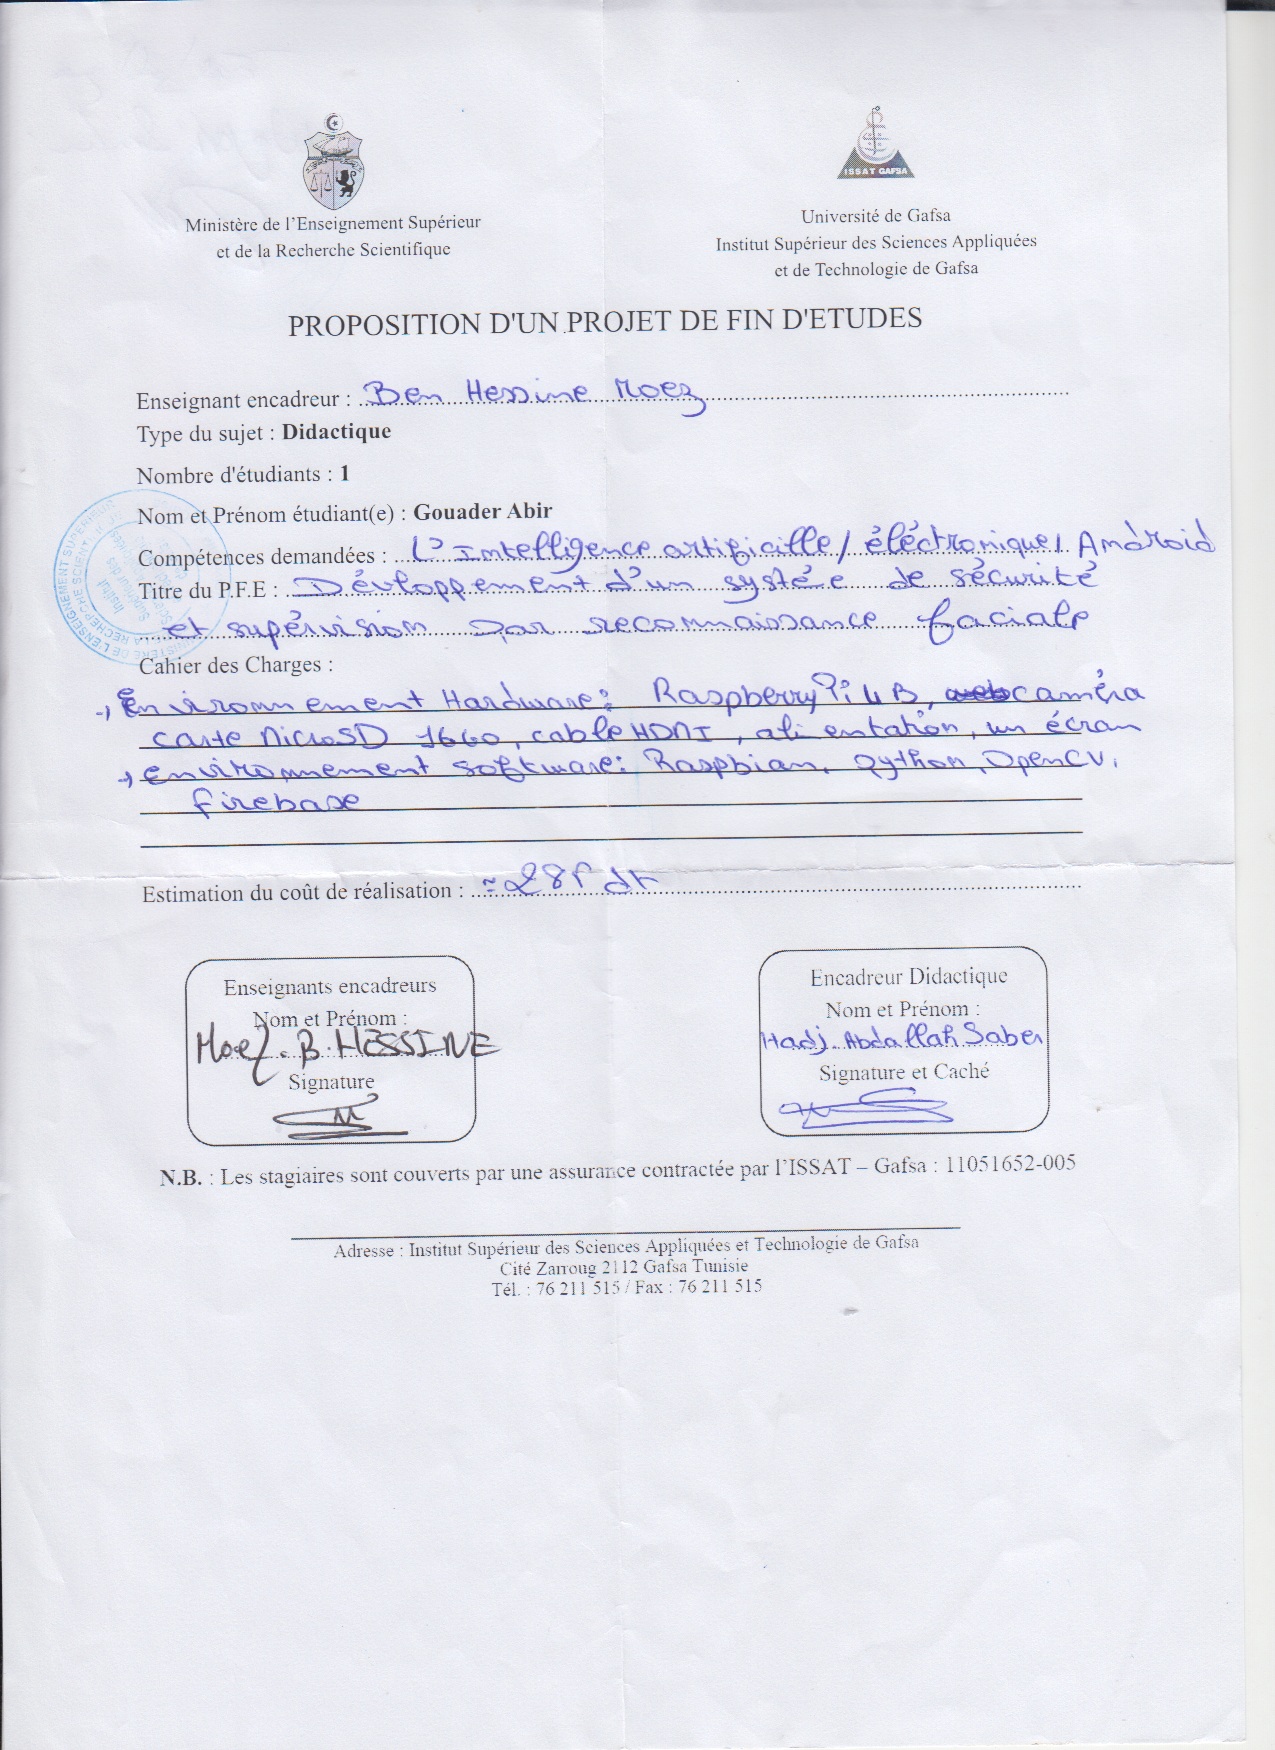 ISSAT GAFSA
Ministère de l'Enseignement Supérieur
et de la Recherche Scientifique
Université de Gafsa
Institut Supérieur des Sciences Appliquées
et de Technologie de Gafsa
PROPOSITION D'UN PROJET DE FIN D'ETUDES
Enseignant encadreur : Ben Hessine Moez
Type du sujet : Didactique
Nombre d'étudiants : 1
Nom et Prénom étudiant(e) : Gouader Abir
Compétences demandées : L'Intelligence artificille / éléctronique / Android
Titre du P.F.E : Dévloppement d'un systéme de sécurité
et supérvision par reconnaissance faciale
Cahier des Charges :
→ Environnement Hardware : Raspberry Pi 4 B, caméra
carte MicroSD 16GO, cable HDMI, alimentation, un écran
→ environnement software : Raspbian, python, OpenCV,
firebase
Estimation du coût de réalisation : ≈ dt
Enseignants encadreurs
Nom et Prénom :
Moez. B. HESSINE
Signature
Encadreur Didactique
Nom et Prénom :
Hadj. Abdallah Saber
Signature et Caché
N.B. : Les stagiaires sont couverts par une assurance contractée par l'ISSAT – Gafsa : 11051652-005
Adresse : Institut Supérieur des Sciences Appliquées et Technologie de Gafsa
Cité Zarroug 2112 Gafsa Tunisie
Tél. : 76 211 515 / Fax : 76 211 515